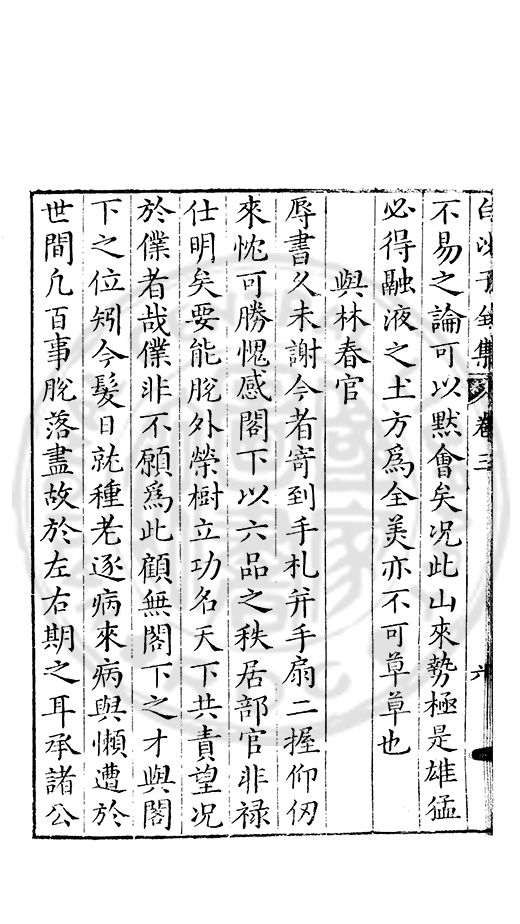 白沙子全集 卷三 六
不易之論可以默會矣况此山來勢極是雄猛
必得融液之土方爲全美亦不可草草也
與林春官
辱書久未謝今者寄到手札幷手扇二握仰仞
來忱可勝愧感閣下以六品之秩居部官非禄
仕明矣要能脫外榮樹立功名天下共責望况
於僕者哉僕非不願爲此顧無閣下之才與閣
下之位矧今髮日就種老逐病來病與懶遭於
世間凡百事脫落盡故於左右期之耳承諸公